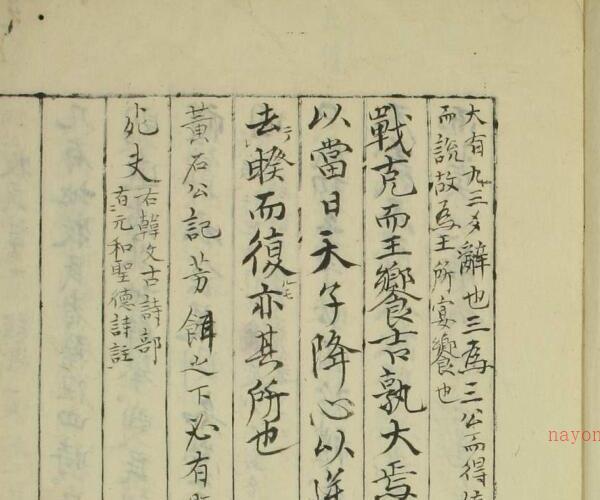 大有九三爻辭也三為三公而得位
而說故為王所宴饗也
戰克而王饗吉孰大焉
以當日天子降心以逆
去睽而復亦其所也
黃石公記芳餌之下必有
死夫
右韓文古詩部
有元和聖德詩註
nayon